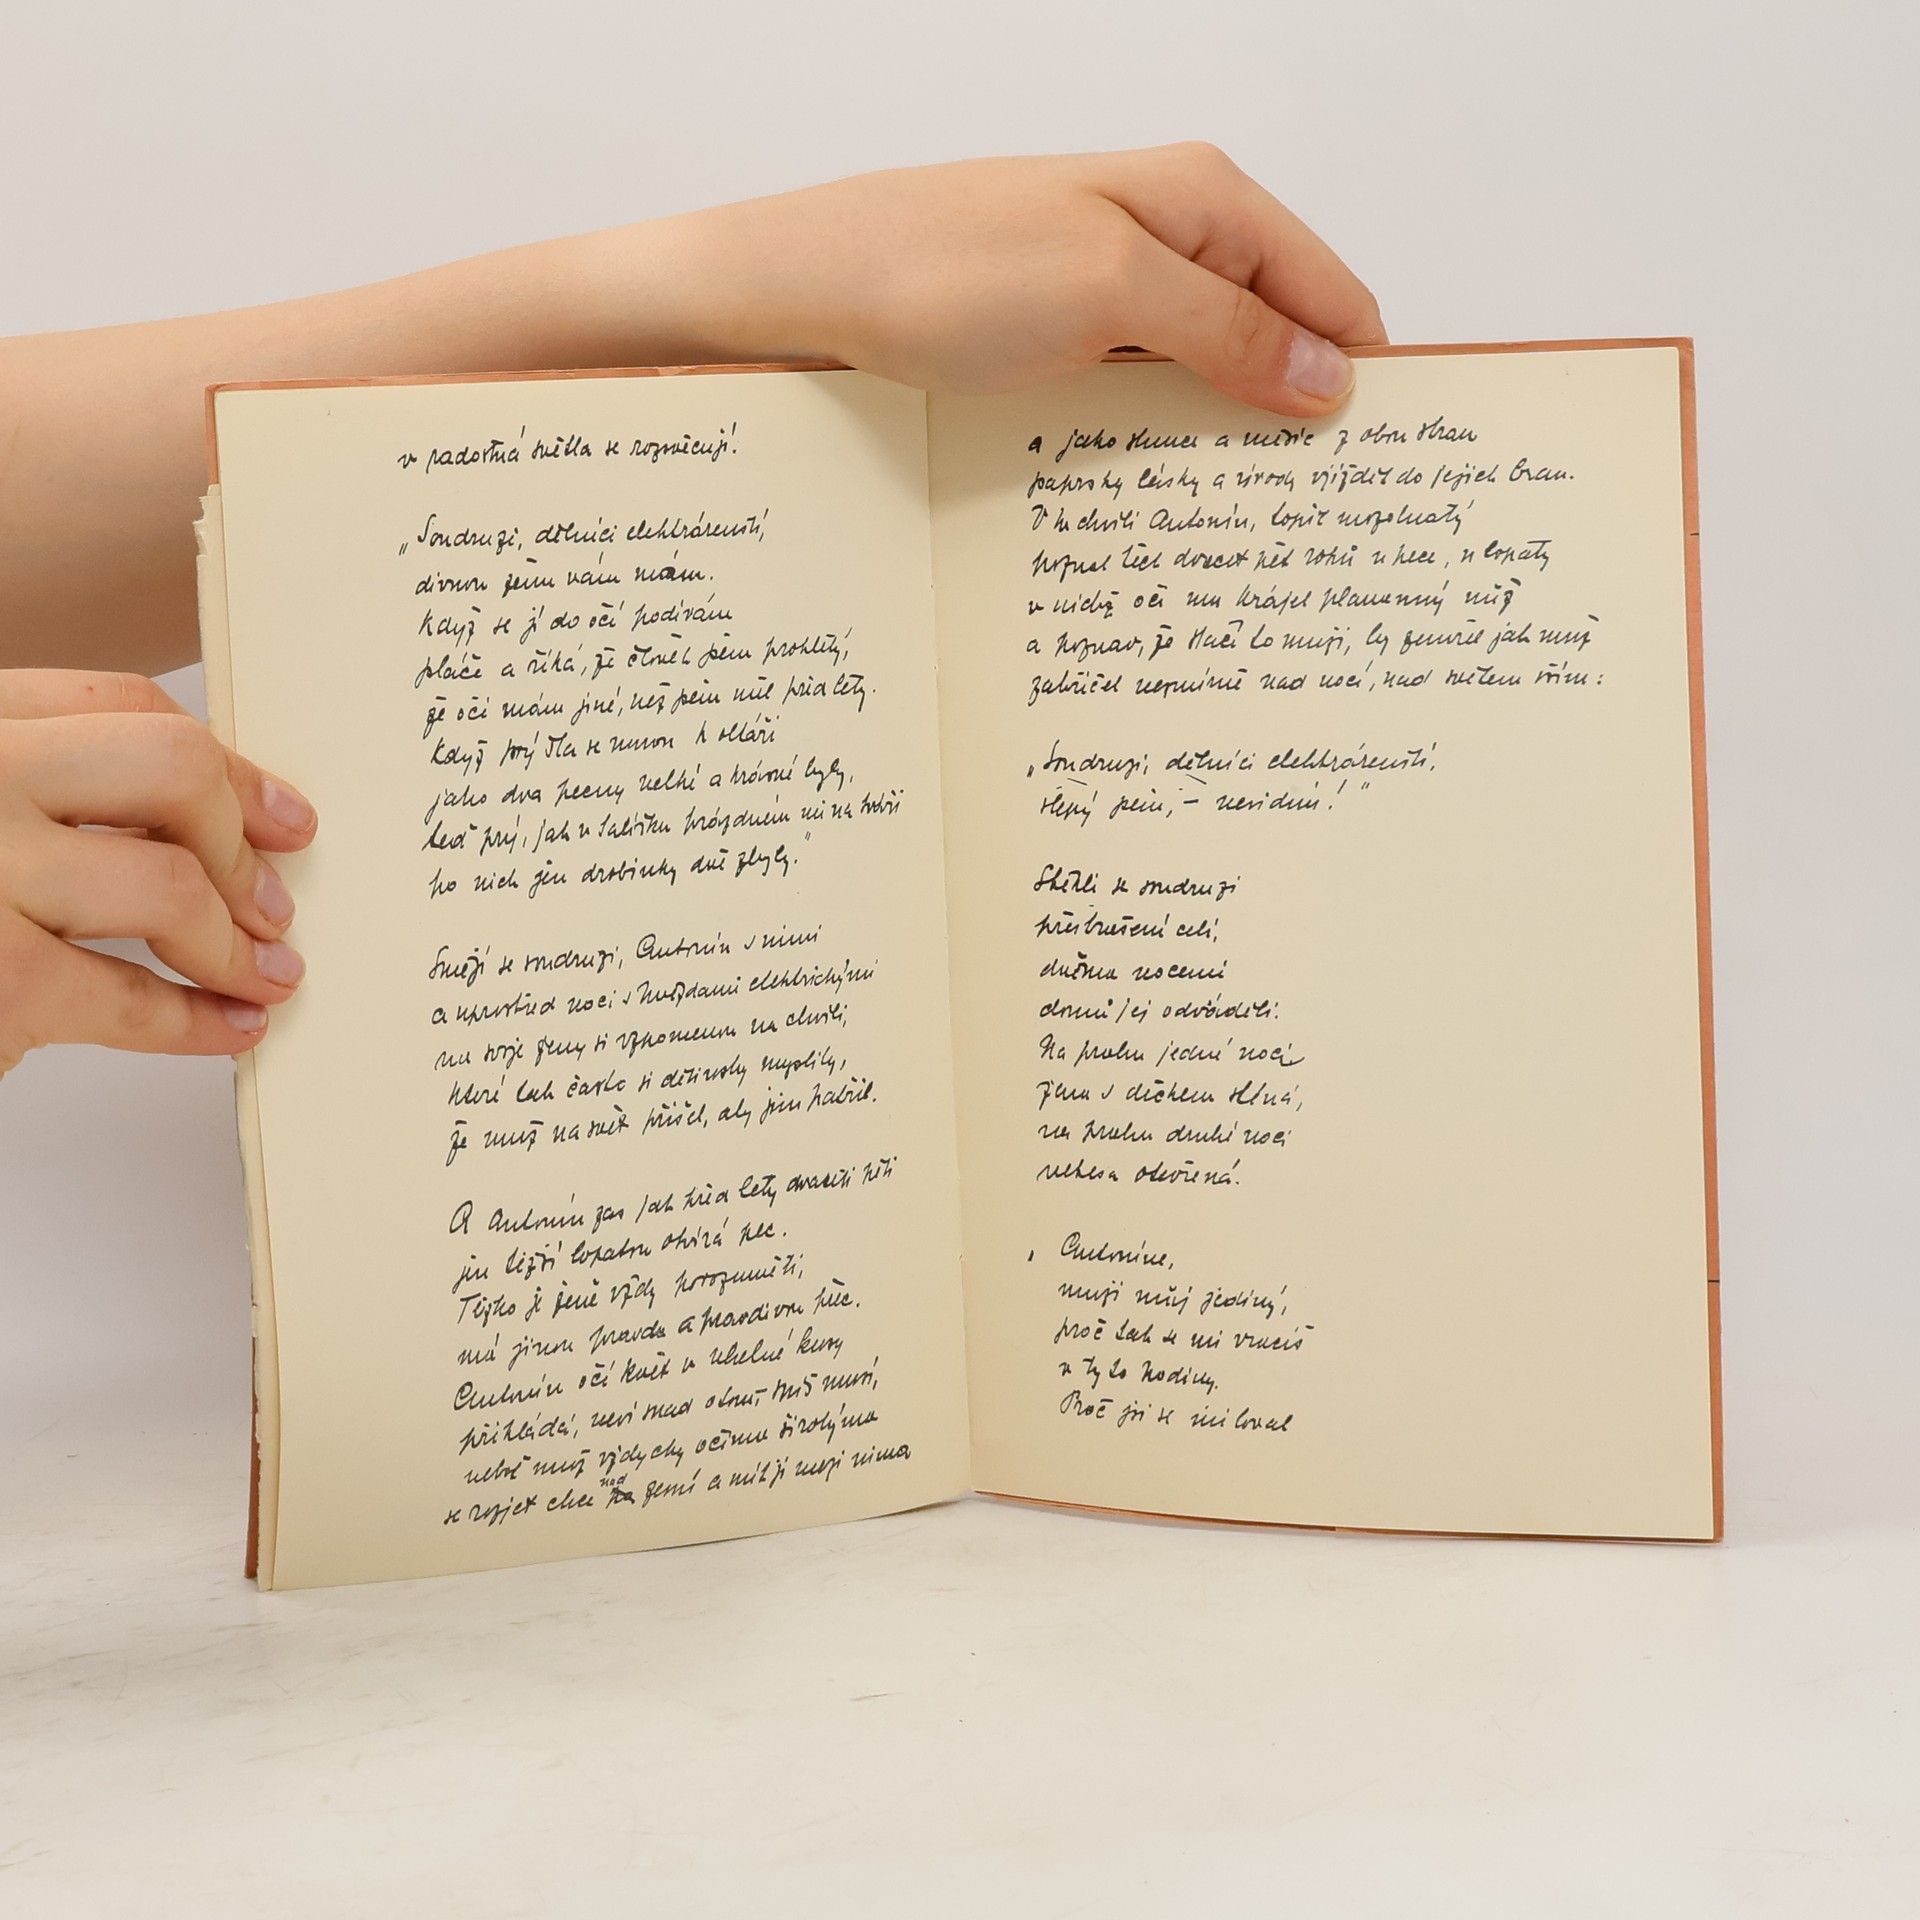 v radostná světla se rozsvěcují!
„Soudruzi, dělníci elektrárenští,
divnou ženu vám mám.
Když se jí do očí podívám
pláče a říká, že člověk jsem prokletý,
že oči mám jiné, než jsem měl před lety.
Když prý šla se mnou k oltáři
jako dva pecny velké a krásné byly,
teď prý, jak v talířku prázdném mi na tváři
po nich jen drobinky dvě zbyly."
Smějí se soudruzi, Antonín s nimi
a uprostřed noci s hvězdami elektrickými
na svoje ženy si vzpomenou na chvíli,
které tak často si dětinsky myslily,
že muž na svět přišel, aby jim patřil.
A Antonín zas jak před lety dvaceti pěti
jen těžší lopatou otvírá pec.
Těžko je ženě vždy porozuměti,
má jinou pravdu a pravdivou přec.
Antonín očí květ v uhelné kusy
přikládá, neví snad o tom, spíš musí,
neboť muž vždycky očima širokýma
se rozjet chce nad zemí a mít ji mezi nima
a jako slunce a měsíc z obou stran
paprsky lásky a úrody vjíždět do jejich bran.
V tu chvíli Antonín, topič mozolnatý
poznal těch dvacet pět roků u pece, u lopaty
v nichž oči mu krájel plamenný nůž
a poznav, že stačí to muži, by zemřel jak muž
zakřičel nesmírně nad nocí, nad světem vším:
„Soudruzi, dělníci elektrárenští,
slepý jsem, – nevidím!"
Sběhli se soudruzi
přestrašení celí,
dvěma nocemi
domů jej odváděli.
Na prahu jedné noci
žena s děckem sténá,
na prahu druhé noci
nebesa otevřená.
„Antoníne,
muži můj jediný,
proč tak se mi vracíš
v tyto hodiny.
Proč jsi se miloval